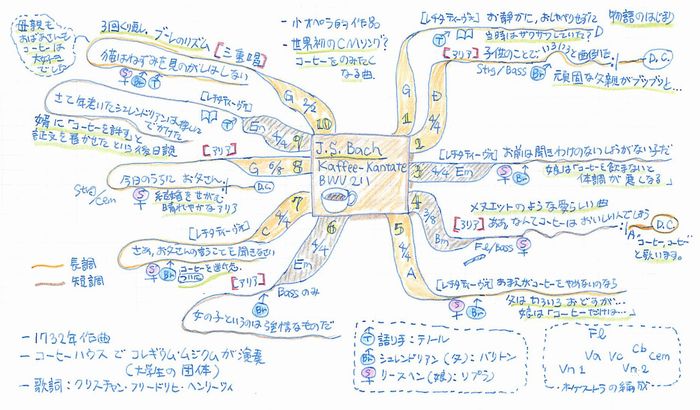 J.S. Bach
Kaffee-Kantate
BWV 211
- 小オペラ的作品
- 世界初のCMソング?
コーヒーをのみたくなる曲
1
G
[レチタティーヴォ] お静かに、おしゃべりせずに
物語のはじまり
当時はザワザワしていた?
T
2
D
2/4
[アリア] 子供のことで いろいろと面倒だ
D.C.
Strg/Bass
Br
頑固な父親がブツブツと…
3
4/4
Em
[レチタティーヴォ] お前は聞きわけのないしょうがない子だ
S
Br
娘は「コーヒーを飲まないと
体調が悪くなる」
4
3/8
Bm
メヌエットのような愛らしい曲
[アリア] ああ、なんてコーヒーはおいしいんでしょう
D.C.
Fl/Bass
S
"コーヒー、コーヒー"
と歌います。
5
4/4
A
[レチタティーヴォ] おまえがコーヒーをやめないのなら
S
Br
父はいろいろおどすが…
娘は「コーヒーだけは…」
6
4/4
Em
[アリア]
Bassのみ
Br
女の子というのは強情なものだ
7
4/4
C
[レチタティーヴォ]
さあ、お父さんの言うことを聞きなさい
S
Br
8
6/8
G
[アリア]
今日のうちに お父さん、
D.C.
Strg/cem
S
結婚をせがむ
晴れやかなアリア
9
4/4
Em
[レチタティーヴォ]
さて年老いたシュレンドリアンは
でかけた
T
婿に「コーヒーを許す」と
証文を書かせたという後日談
10
2/2
G
[三重唱]
3回くり返し、ブーレのリズム
猫はねずみを見のがしはしない
S
Br
T
母親も
おばあさんも
コーヒーは
大好き
でした
長調
短調
- 1732年作曲
- コーヒーハウスで コレギウム・ムジクムが演奏
(大学生の団体)
- 歌詞: クリスチャン・フリードリヒ・ヘンリーツィ
T 語り手: テノール
Br シュレンドリアン(父): バリトン
S リースヘン(娘): ソプラノ
Fl
Va
Vc
Cb
Cem
Vn1
Vn2
オーケストラの編成